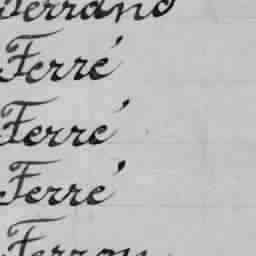 Serrano
Ferré
Ferré
Ferré
Ferron